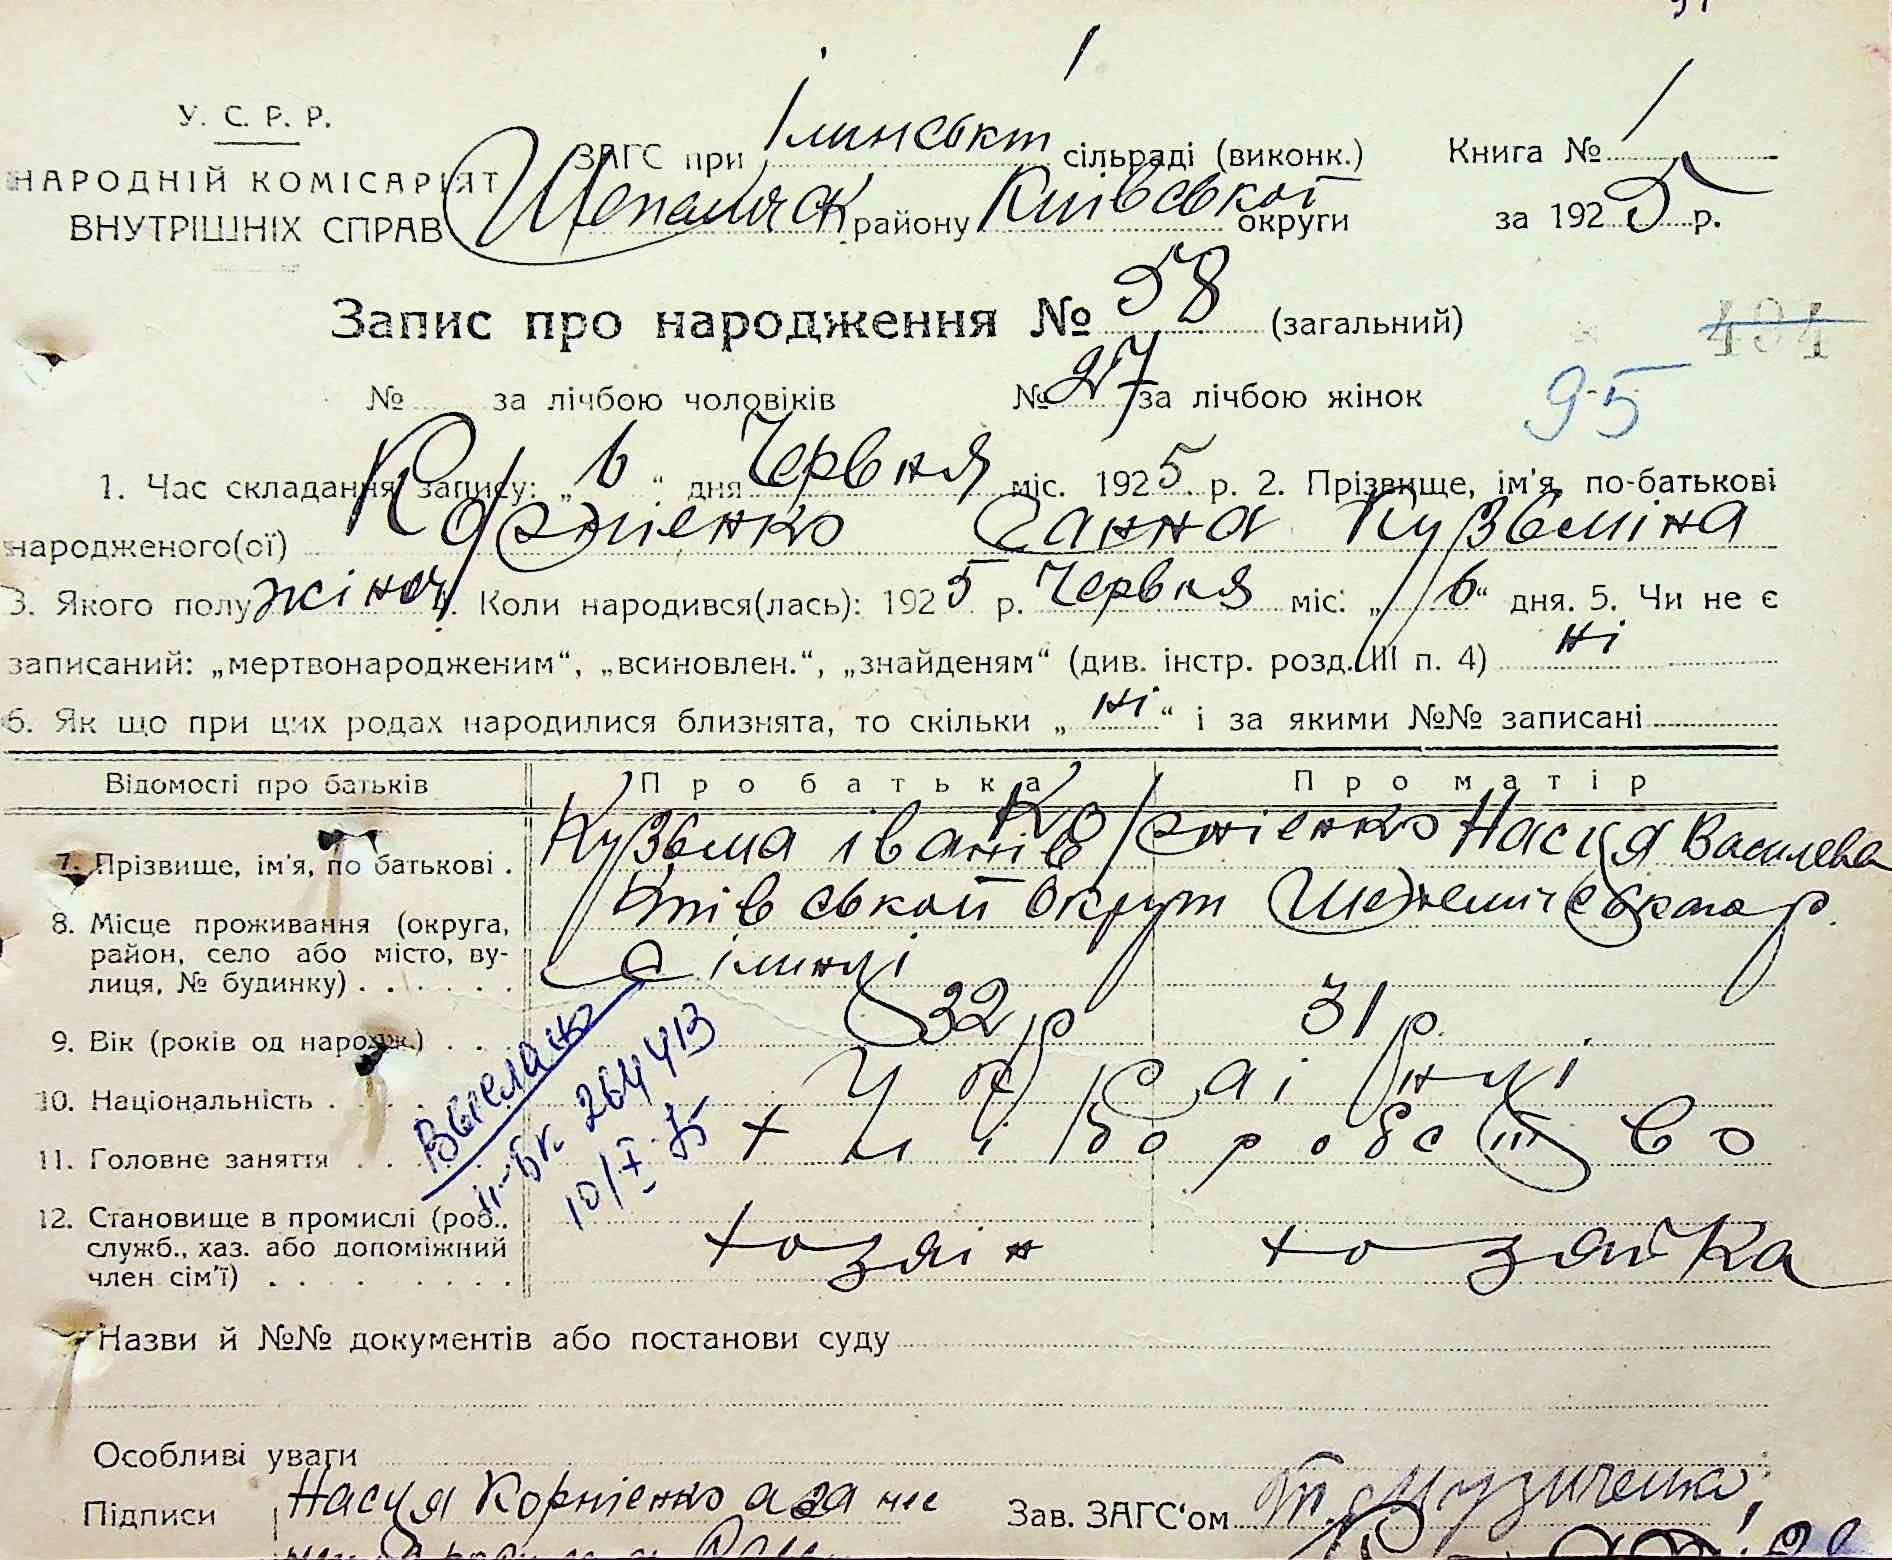 У. С. Р. Р.
НАРОДНІЙ КОМІСАРІЯТ
ВНУТРІШНІХ СПРАВ
ЗАГС при Ілинській сільраді (виконк.)
району Київської округи
Книга № 1
за 1925 р.
Запис про народження № 58 (загальний)
494
№ за лічбою чоловіків № 27 за лічбою жінок
95
1. Час складання запису: „ 6 “ дня Червня міс. 1925 р. 2. Прізвище, ім'я, по-батькові
народженого(ої) Корнієнко Ганна Кузьміна
3. Якого полу жіноч 4. Коли народився(лась): 1925 р. Червня міс: „ 6 “ дня. 5. Чи не є
записаний: „мертвонародженим“, „всиновлен.“, „знайденям“ (див. інстр. розд. III п. 4) ні
6. Як що при цих родах народилися близнята, то скільки „ ні “ і за якими №№ записані
Відомості про батьків Про батька Про матір
7. Прізвище, ім'я, по батькові . Кузьма Іванів Корнієнко Насця Василева
8. Місце проживання (округа, район, село або місто, вулиця, № будинку) . . . . . . Київської округи р.
с Ілинці
9. Вік (років од народж.) . . 32 р 31 р.
10. Національність . . . Українці
11. Головне заняття . . . Хліборобство
12. Становище в промислі (роб., служб., хаз. або допоміжний член сім'ї) . . . . . . . . хозяін хозяйка
Выслано
264413
10/I-75
Назви й №№ документів або постанови суду
Особливі уваги
Підписи Насця Корнієнко а за нее
Зав. ЗАГС'ом